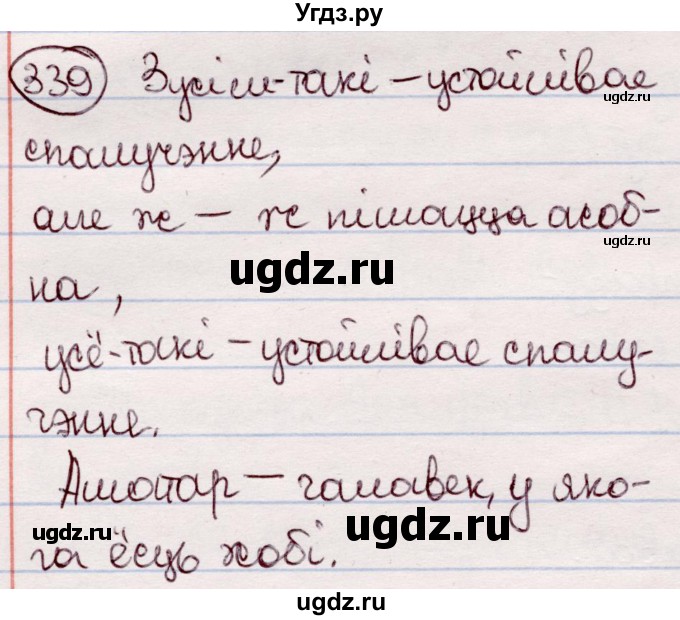 Угдз.ру
339 Зусім-такі – устойлівае
ugdz.ru
спалучэнне,
але ж – ж пішацца асоб-
ugdz.ru
ugdz.ru
на,
усё-такі – устойлівае спалу-
чэнне.
Аматар – чалавек, у яко-
ugdz.ru
ugdz.ru
га ёсць хобі.
ugdz.ru